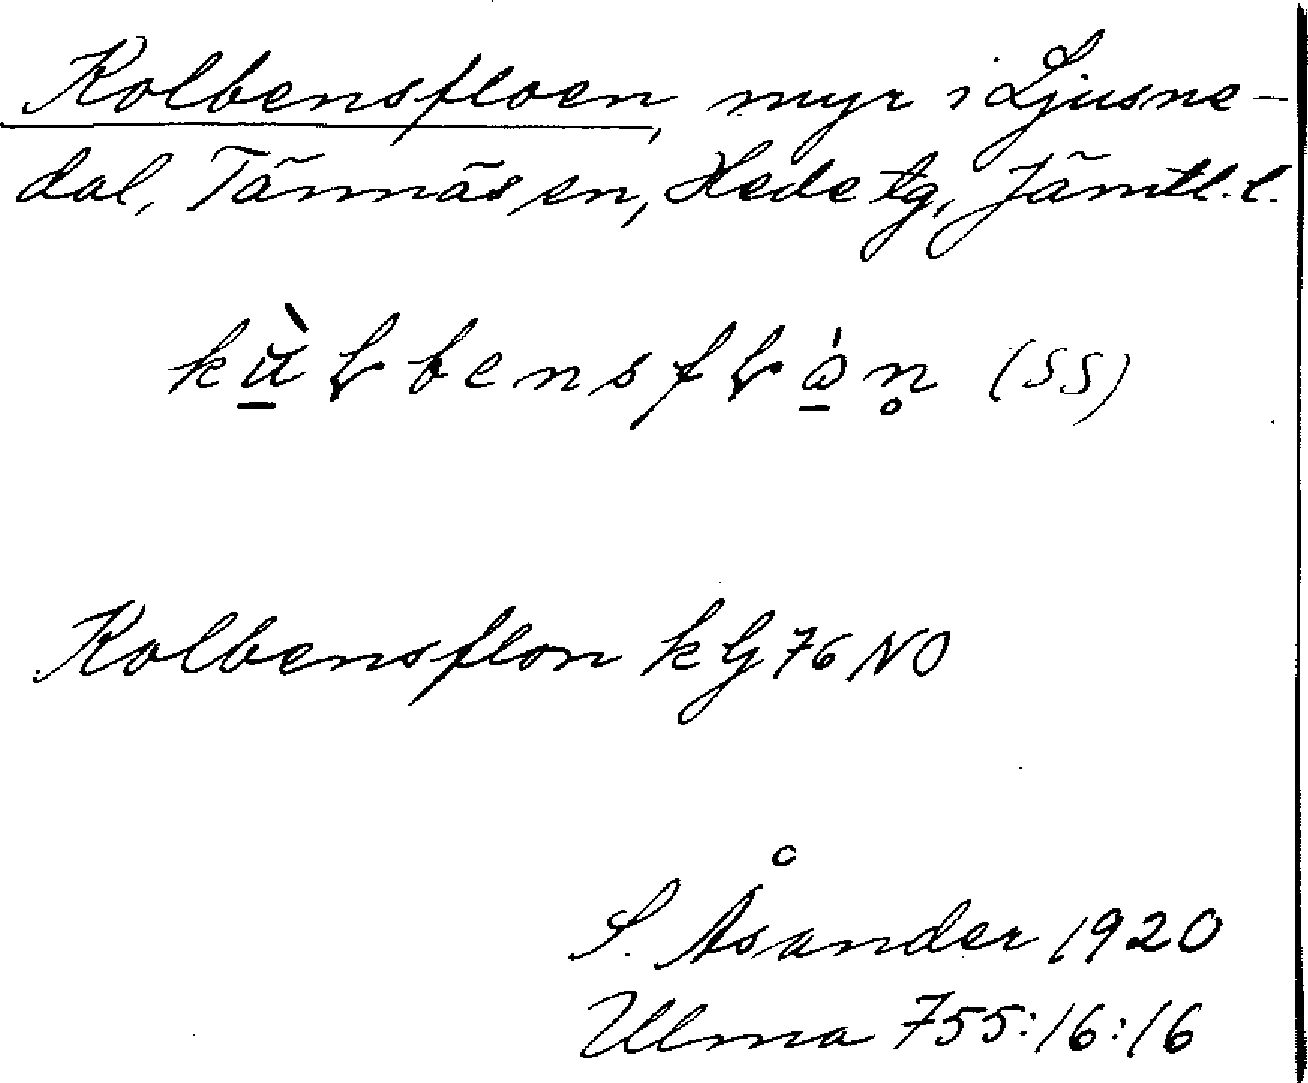 Kolbensfloen, myr i Ljusne-
dal, Tännäs sn, Hede tg, Jämtl. l.
kὰɭbensfɭɷ́n̥ (SS)
Kolbensflon kG 76 NO
S. Åsander 1920
Ulma 755:16:16